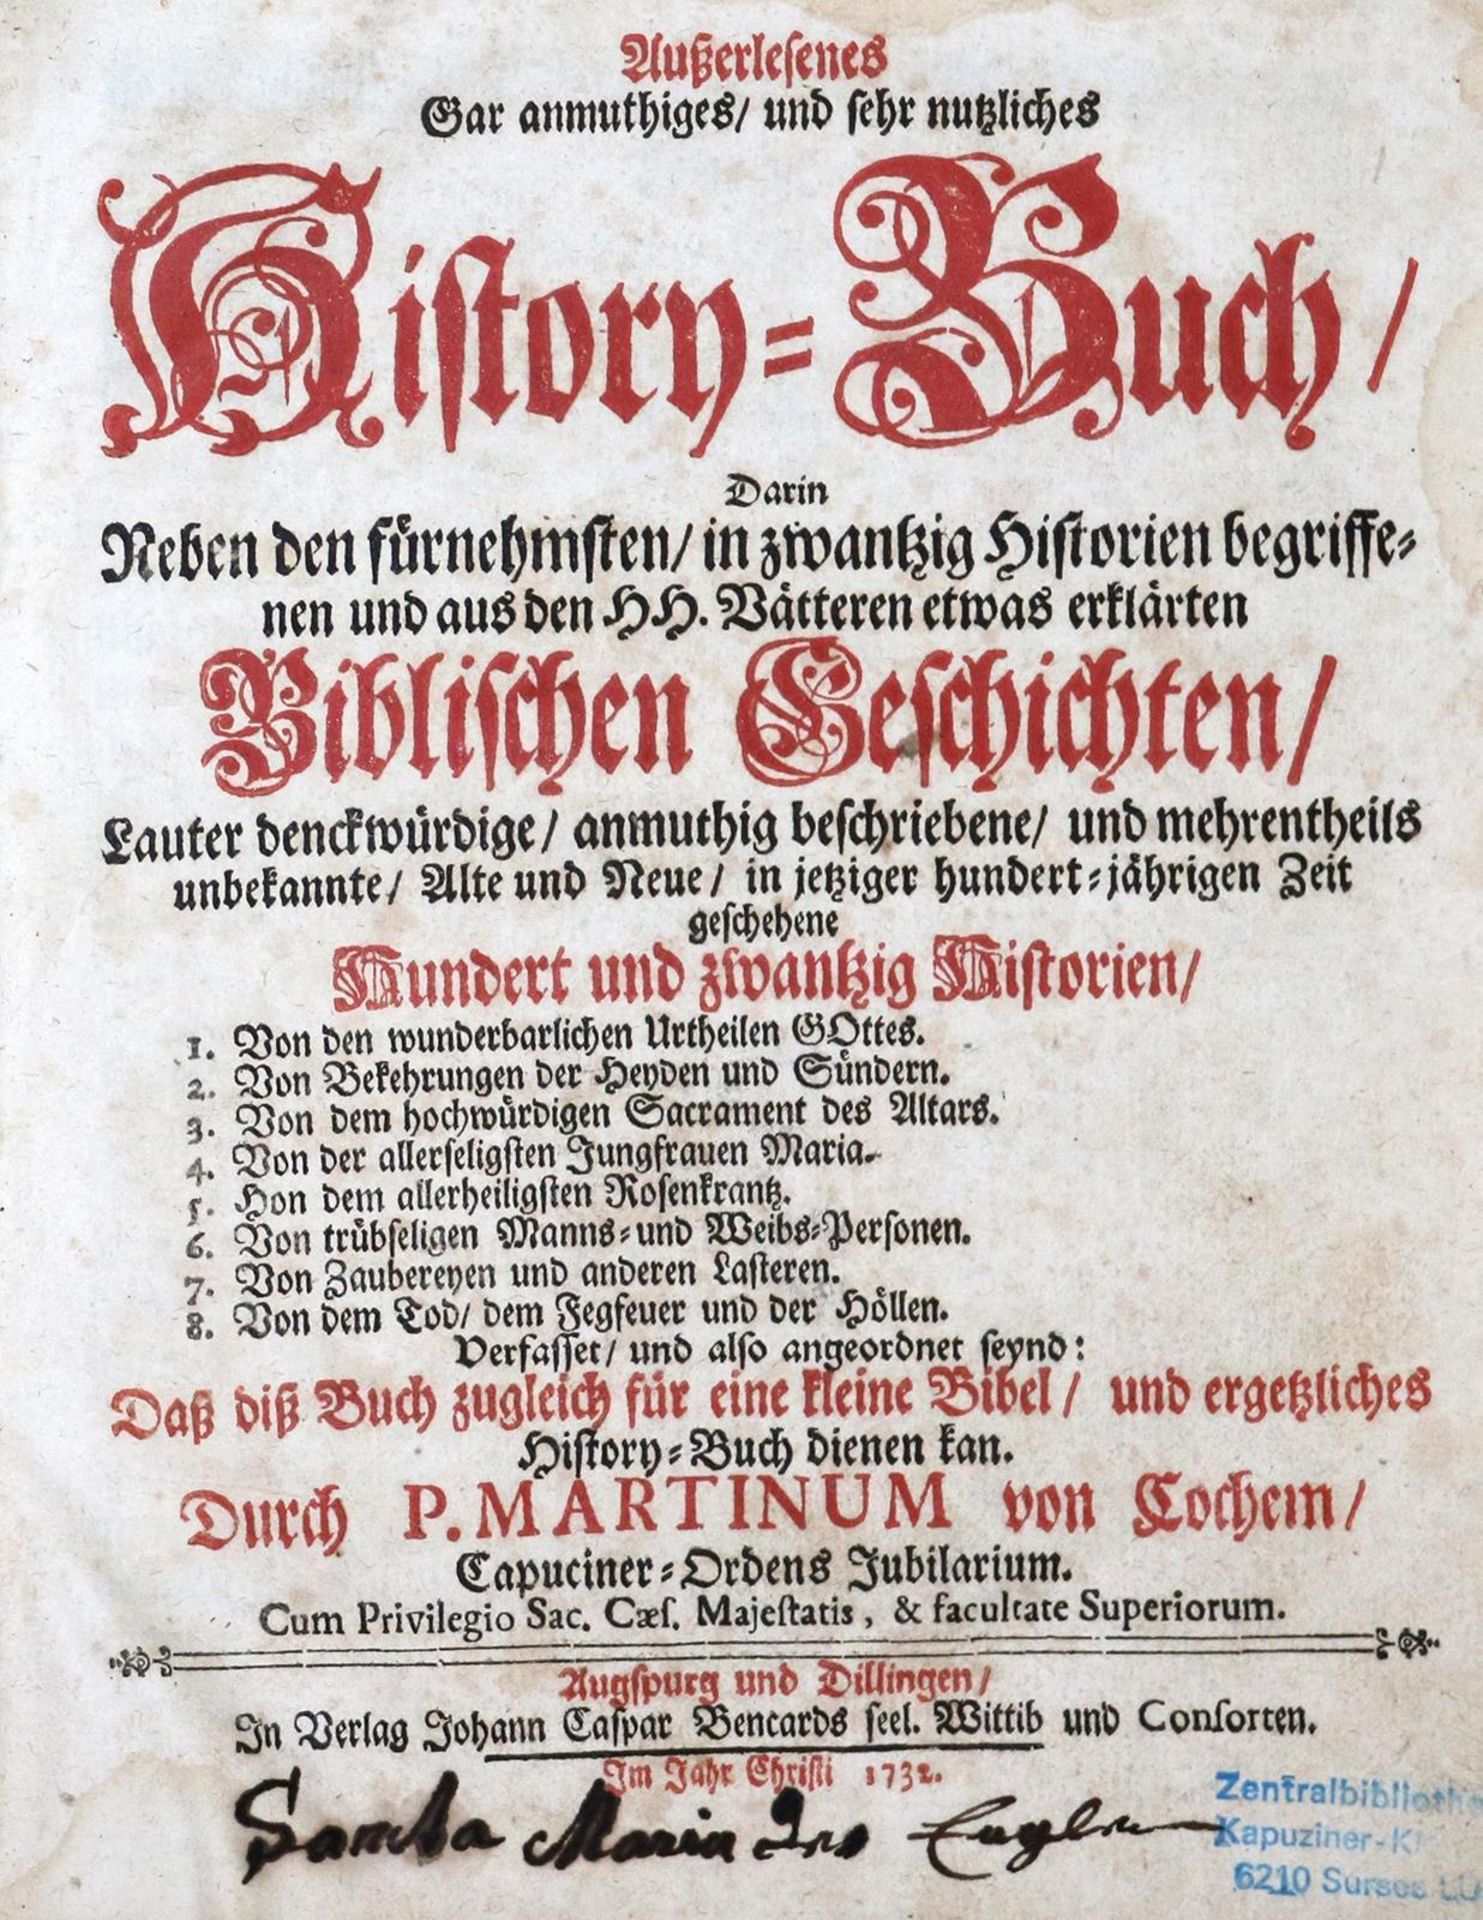 Außerlesenes
Gar anmuthiges/ und sehr nutzliches
History-Buch/
Darin
Neben den fürnehmsten/ in zwantzig Historien begriffe-
nen und aus den HH. Vätteren etwas erklärten
Biblischen Geschichten/
Lauter denckwürdige/ anmuthig beschriebene/ und mehrentheils
unbekannte/ Alte und Neue/ in jetziger hundert-jährigen Zeit
geschehene
Hundert und zwantzig Historien/
1. Von den wunderbarlichen Urtheilen GOttes.
2. Von Bekehrungen der Heyden und Sündern.
3. Von dem hochwürdigen Sacrament des Altars.
4. Von der allerseligsten Jungfrauen Maria.
5. Hon dem allerheiligsten Rosenkrantz.
6. Von trübseligen Manns-und Weibs-Personen.
7. Von Zaubereyen und anderen Lasteren.
8. Von dem Tod/ dem Fegfeuer und der Höllen.
Verfasset/ und also angeordnet seynd:
Daß diß Buch zugleich für eine kleine Bibel/ und ergetzliches
History-Buch dienen kan.
Durch P. MARTINUM von Cochem/
Capuciner-Ordens Jubilarium.
Cum Privilegio Sac. Cæs. Majestatis, & facultate Superiorum.
Augspurg und Dillingen/
In Verlag Johann Caspar Bencards seel. Wittib und Consorten.
Im Jahr Christi 1732.
Sancta Maria
Zentralbibliothe
Kapuziner-Kl
6210 Sursee LU